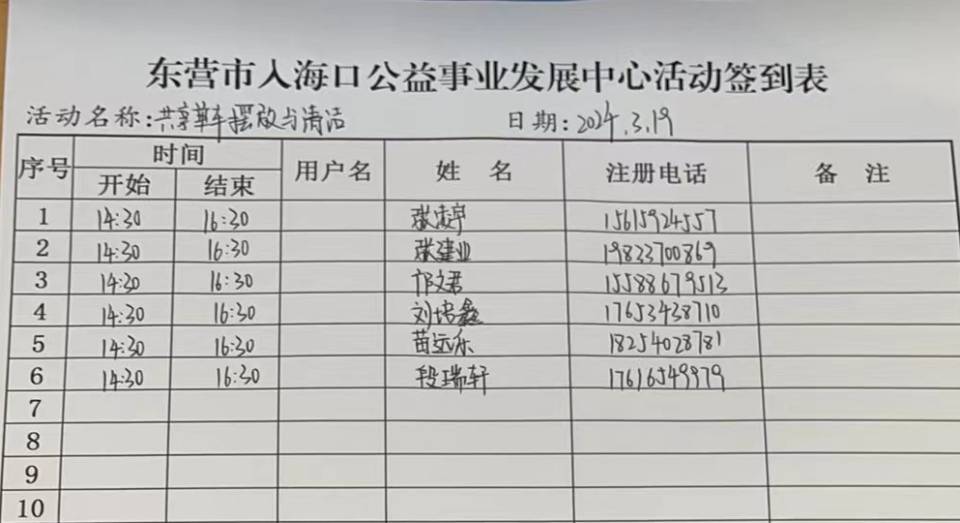 东营市入海口公益事业发展中心活动签到表
活动名称:共享单车摆放与清洁 日期:2024.3.19
序号 时间 用户名 姓 名 注册电话 备 注
开始 结束
1 14:30 16:30 15615924557
2 14:30 16:30 张建业 19823700869
3 14:30 16:30 邝文君 15588679513
4 14:30 16:30 刘培鑫 17653438710
5 14:30 16:30 苗远乐 18254028781
6 14:30 16:30 段瑞轩 17616549979
7
8
9
10